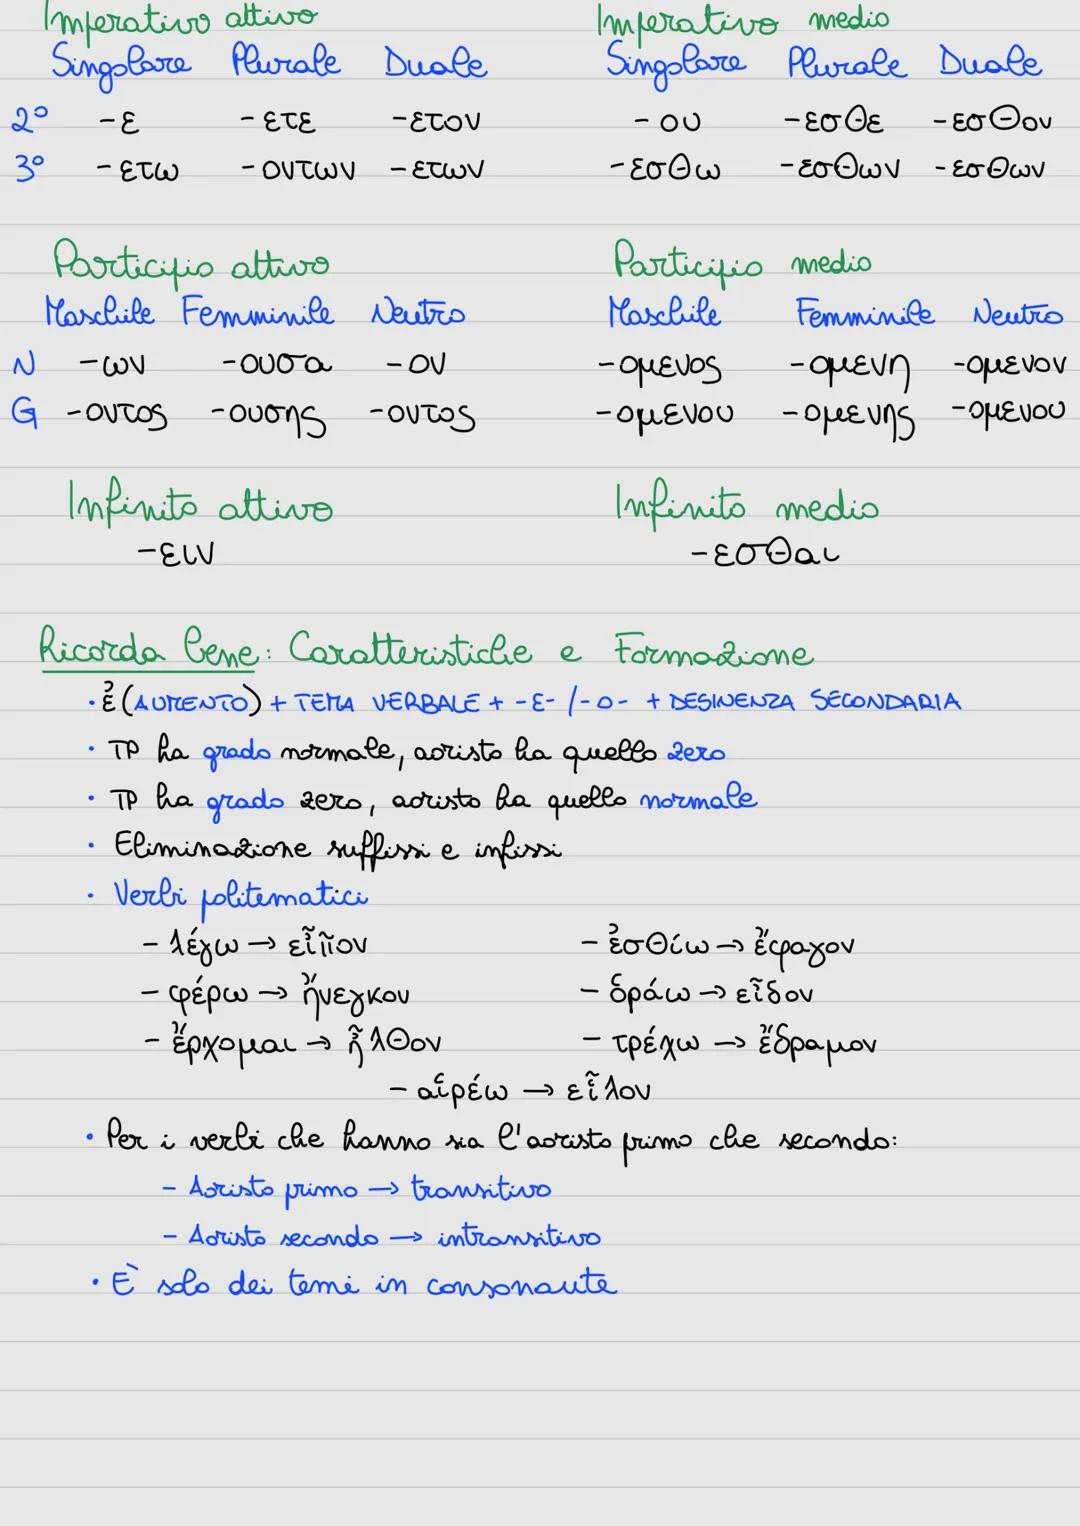 Imperativo attivo Imperativo medio
Singolare Plurale Duale Singolare Plurale Duale
2° -ε -ετε -ετον -ου -εσθε -εσθον
3° -ετω -οντων -ετων -εσθω -εσθων -εσθων
Participio attivo Participio medio
Maschile Femminile Neutro Maschile Femminile Neutro
N -ων -ουσα -ον -ομενος -ομενη -ομενον
G -οντος -ουσης -οντος -ομενου -ομενης -ομενου
Infinito attivo Infinito medio
-ειν -εσθαι
Ricorda bene: Caratteristiche e Formazione
• ἐ (AUMENTO) + TEMA VERBALE + -ε- /-ο- + DESINENZA SECONDARIA
• TP ha grado normale, aoristo ha quello zero
• TP ha grado zero, aoristo ha quello normale
• Eliminazione suffissi e infissi
• Verbi politematici
- λέγω → εἶπον - ἐσθίω → ἔφαγον
- φέρω → ἤνεγκον - ὁράω → εἶδον
- ἔρχομαι → ἦλθον - τρέχω → ἔδραμον
- αἱρέω → εἷλον
• Per i verbi che hanno sia l'aoristo primo che secondo:
- Aoristo primo → transitivo
- Aoristo secondo → intransitivo
• È solo dei temi in consonante